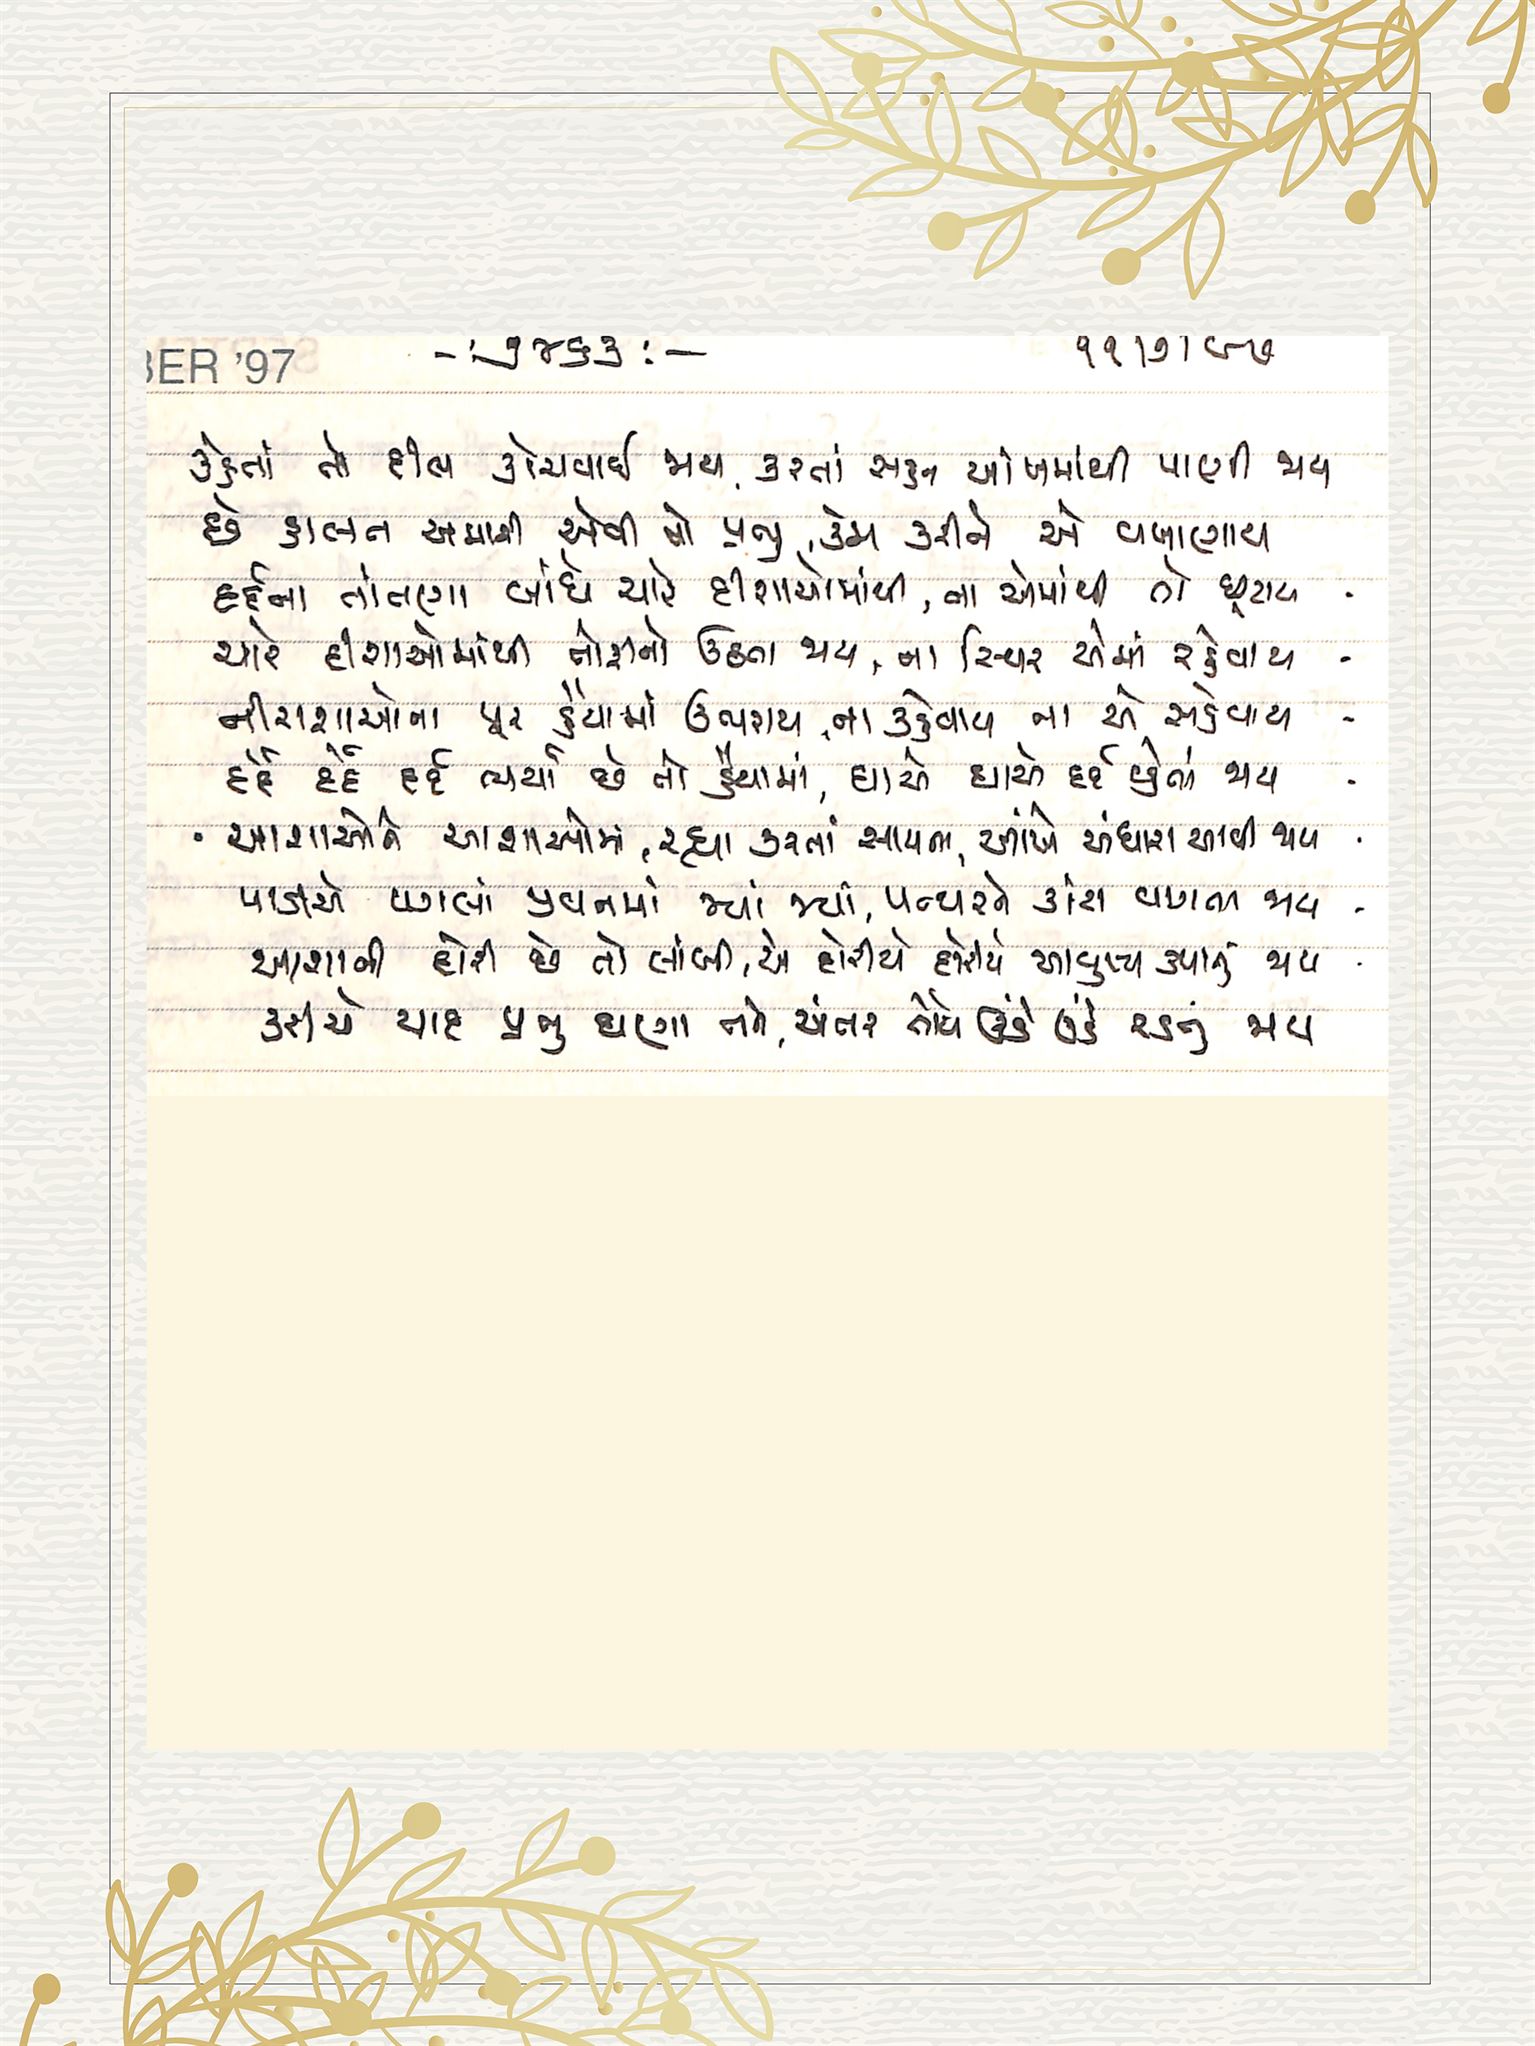 BER '97
-: ૭૪૬૩ :- ૧૧।૭।૯૭
કહેતાં તો દીલ કોચવાઈ જાય, કરતાં સહન આંખમાંથી પાણી જાય
છે હાલત અમારી એવી તો પ્રભુ, કેમ કરીને એ વખાણાય
દર્દના તાંતણા બાંધે ચારે દીશાઓમાંથી, ના એમાંથી તો છૂટાય .
ચારે દીશાઓમાંથી તોફાનો ઉઠતા જાય, ના સ્થિર એમાં રહેવાય -
નીરાશાઓના પૂર હૈયામાં ઉભરાય, ના કહેવાય ના એ સહેવાય -
દર્દે દર્દે દર્દ ભર્યા છે તો હૈયામાં, ઘાએ ઘાએ દર્દ વ્હેતાં જાય .
. આશાઓને આશાઓમાં, રહ્યા કરતાં સાધના, આંખે અંધારા આવી જાય .
પાડીએ પગલાં જીવનમાં જ્યાં જ્યાં, પત્થરને કાંટા વાગતા જાય -
આશાની દોરી છે તો લાંબી, એ દોરીયે દોરીયે આયુષ્ય કપાતું જાય .
કરીએ યાદ પ્રભુ ઘણા તને, અંતર તોયે ઊંડે ઊંડે રડતું જાય